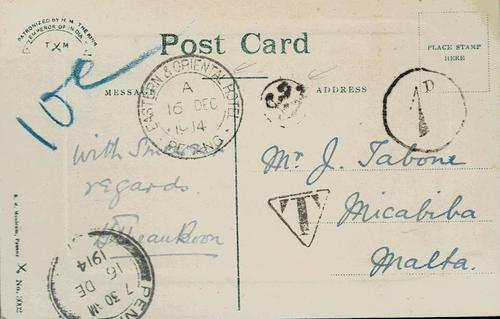 PATRONIZED BY H. M. THE KING
EMPEROR OF INDIA
T X M
Post Card
PLACE STAMP
HERE
MESSAGE
ADDRESS
10c
EASTERN & ORIENTAL HOTEL
A
16 DEC
1914
PENANG
1D
With Sincere
regards.
Mr J. Tabone
Micabiba
Malta.
T
PEN
7 30 AM
16 DE
1914
No. 3002